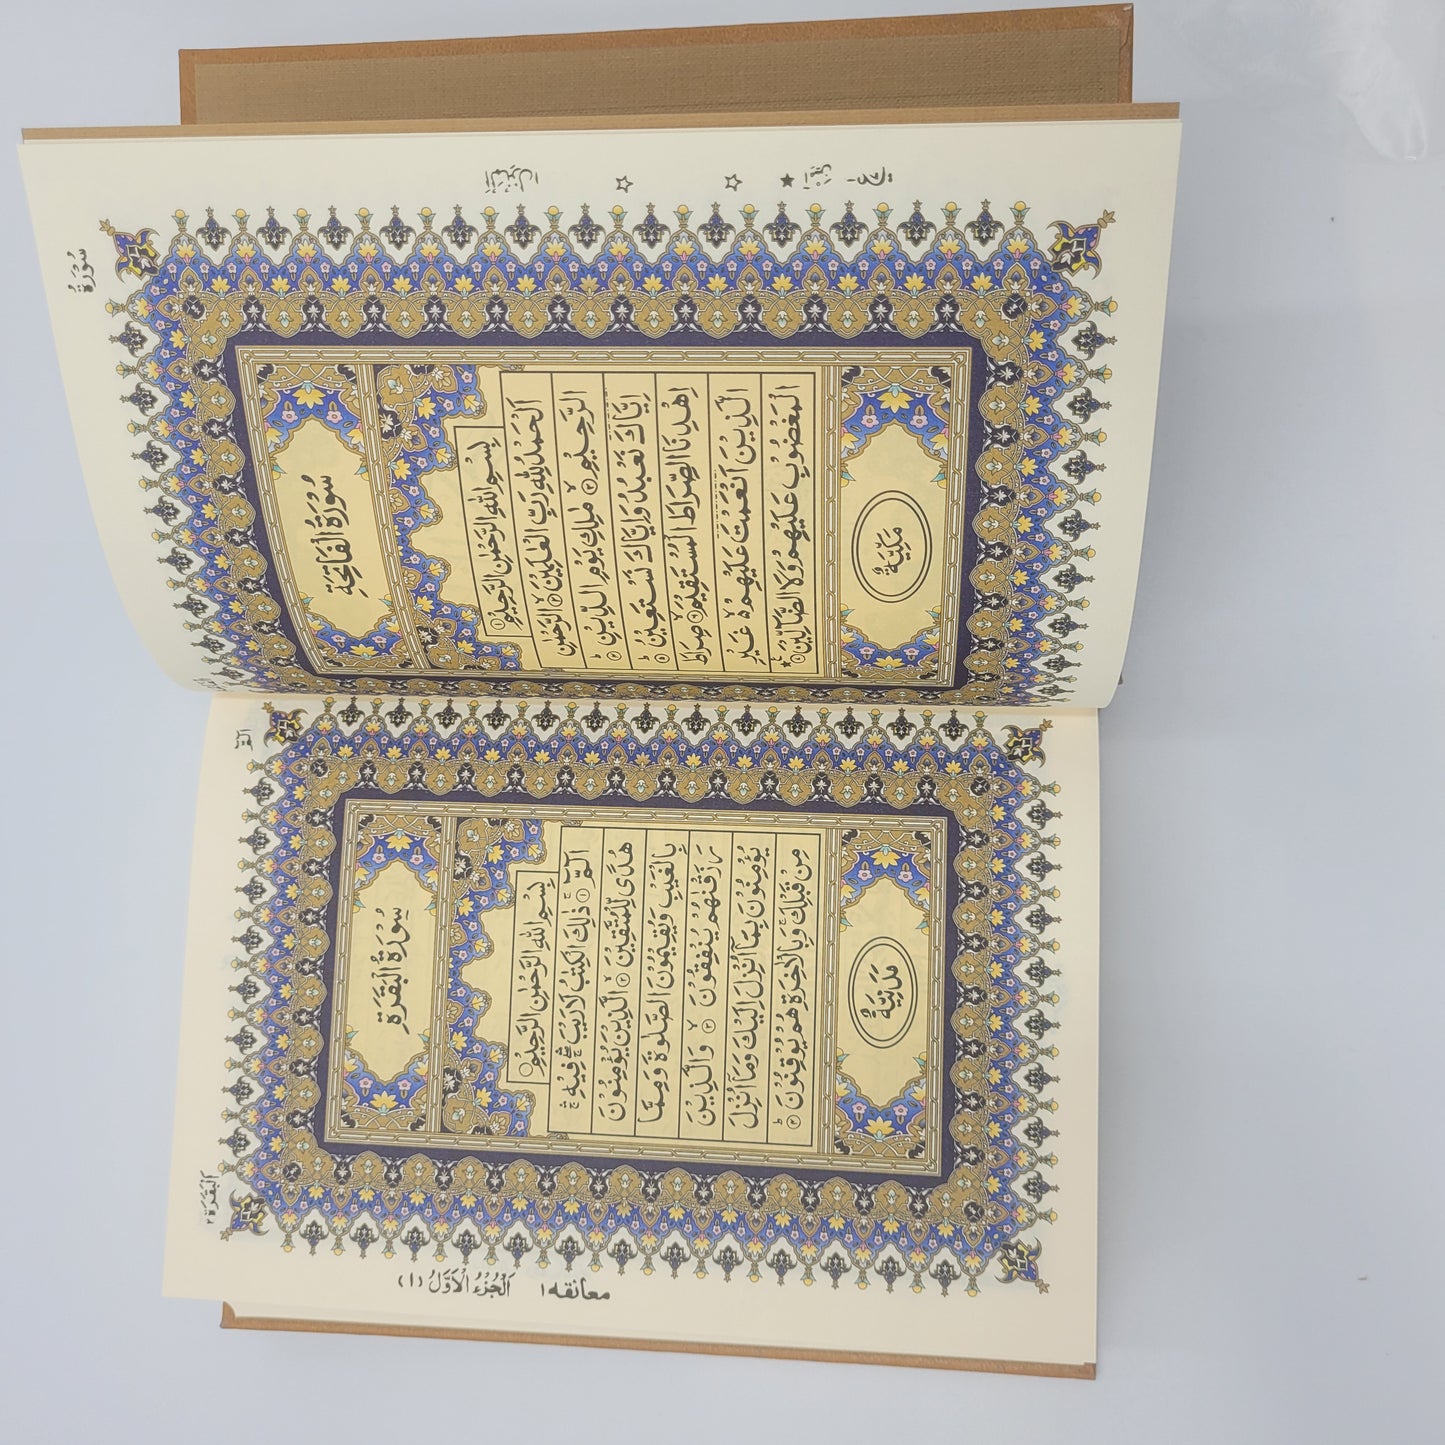 سُوْرَةُ
سُوْرَةُ الْفَاتِحَةِ
بِسْمِ اللّٰهِ الرَّحْمٰنِ الرَّحِيْمِ ①
اَلْحَمْدُ لِلّٰهِ رَبِّ الْعٰلَمِيْنَ ۙ② الرَّحْمٰنِ
الرَّحِيْمِ ۙ③ مٰلِكِ يَوْمِ الدِّيْنِ ؕ④
اِيَّاكَ نَعْبُدُ وَاِيَّاكَ نَسْتَعِيْنُ ؕ⑤
اِهْدِنَا الصِّرَاطَ الْمُسْتَقِيْمَ ۙ⑥ صِرَاطَ
الَّذِيْنَ اَنْعَمْتَ عَلَيْهِمْ ۙ۬ غَيْرِ
الْمَغْضُوْبِ عَلَيْهِمْ وَلَا الضَّآلِّيْنَ
مَكِّيَّةٌ
الٓمّٓ
اَلْبَقَرَة ٢
سُوْرَةُ الْبَقَرَةِ
بِسْمِ اللّٰهِ الرَّحْمٰنِ الرَّحِيْمِ
الٓمّٓ ۚ① ذٰلِكَ الْكِتٰبُ لَا رَيْبَ ۛۖ فِيْهِ ۛۚ
هُدًى لِّلْمُتَّقِيْنَ ۙ② الَّذِيْنَ يُؤْمِنُوْنَ
بِالْغَيْبِ وَيُقِيْمُوْنَ الصَّلٰوةَ وَمِمَّا
رَزَقْنٰهُمْ يُنْفِقُوْنَ ۙ③ وَالَّذِيْنَ
يُؤْمِنُوْنَ بِمَآ اُنْزِلَ اِلَيْكَ وَمَآ اُنْزِلَ
مِنْ قَبْلِكَ ۚ وَبِالْاٰخِرَةِ هُمْ يُوْقِنُوْنَ ؕ④
مَدَنِيَّةٌ
اَلْجُزْءُ الْاَوَّلُ (١)
معانقه ١